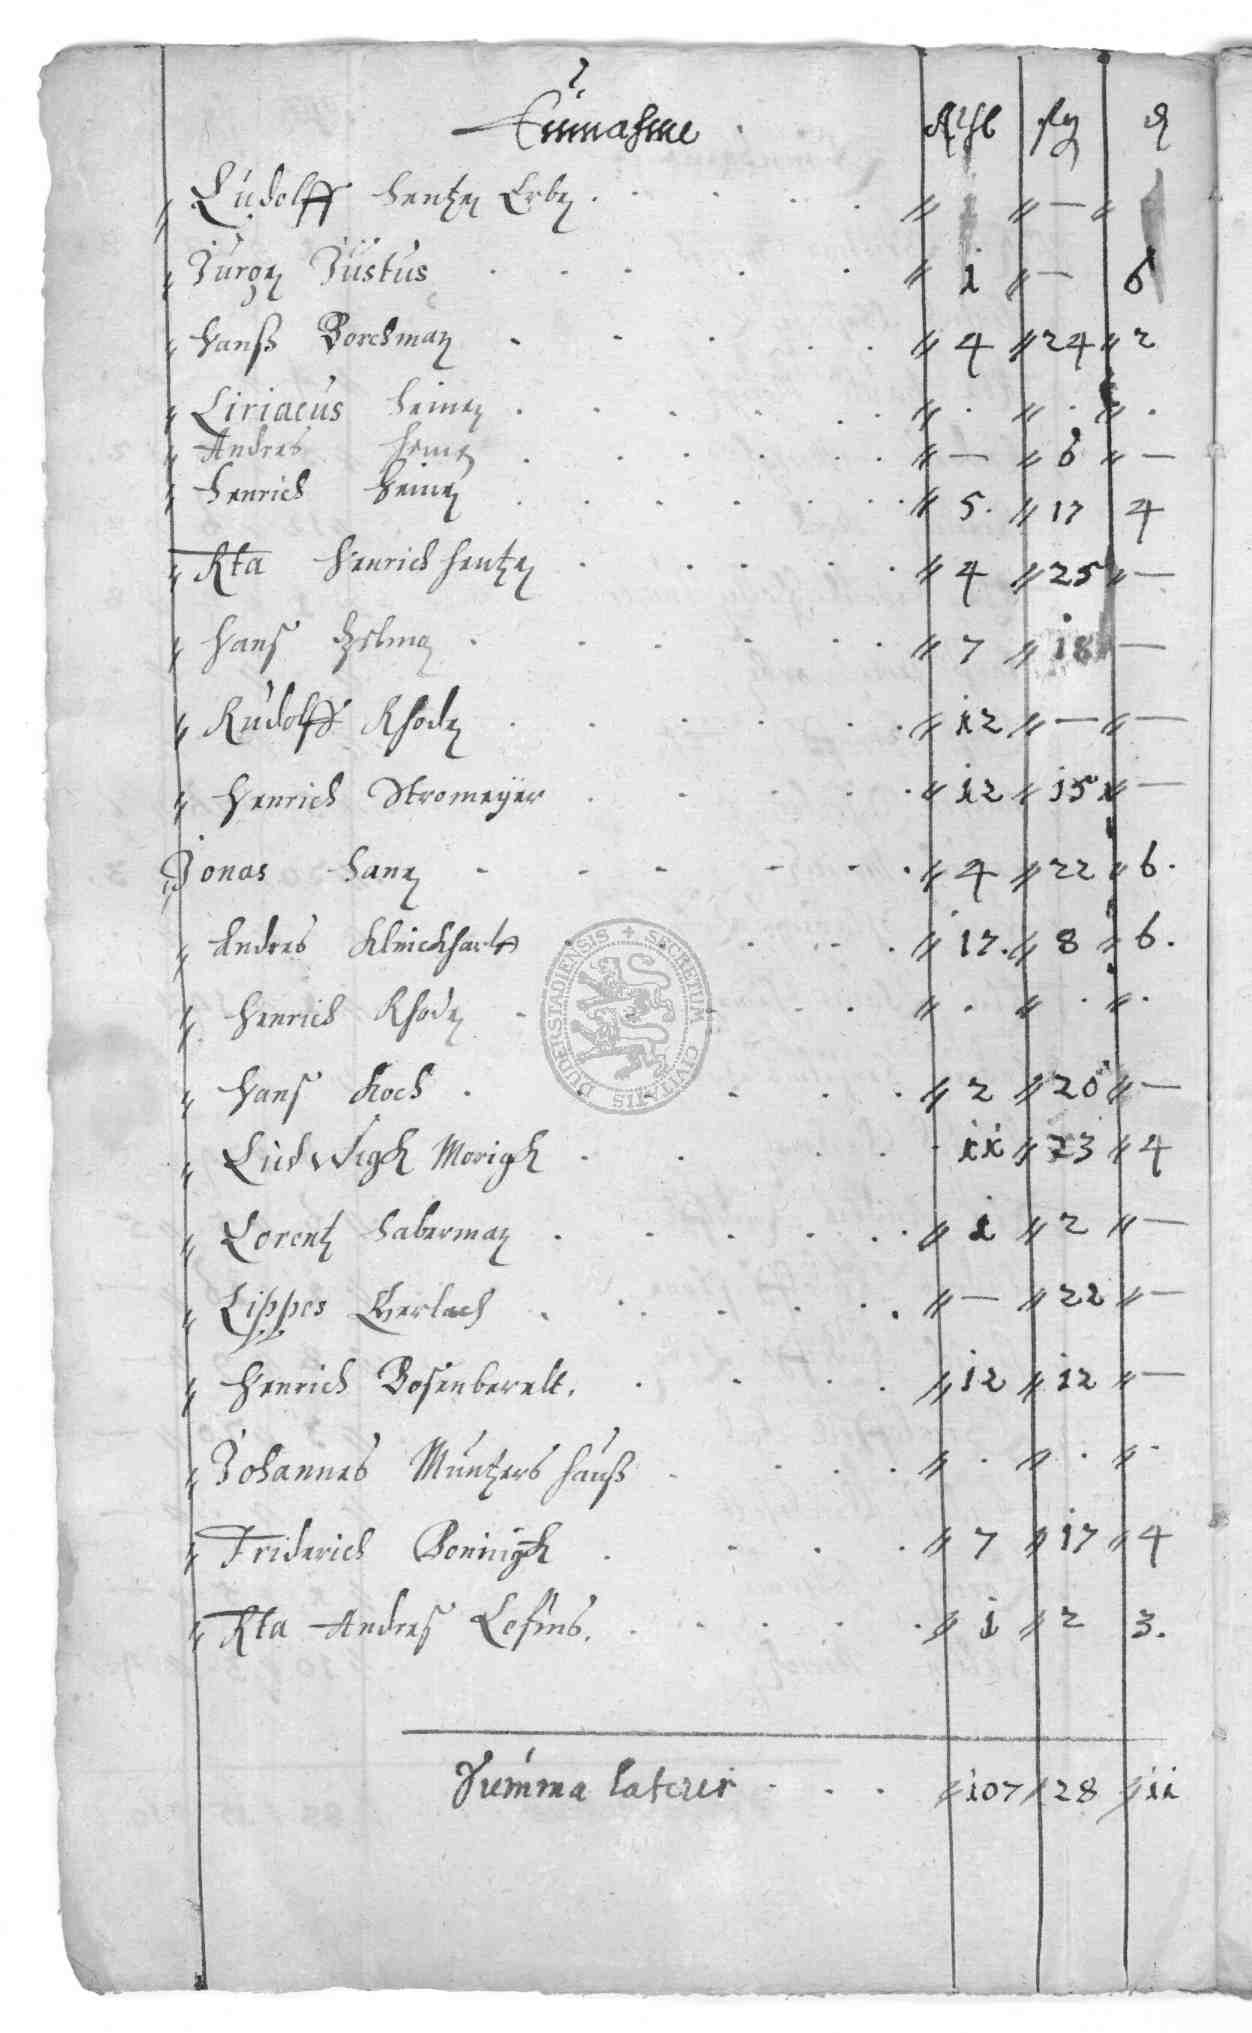 Einnahme Rthl ßg ₰
" Rudolff Hentzen Erben . . . . " 1 " — "
" Jurgen Justus . . . . . " 1 " — 6
" Hanß Borchman . . . . . " 4 " 24 " 2
" Ciriacus Heinen . . . . . . " . " . " .
" Andres Heinen . . . . . . " — " 6 " —
" Henrich Heinen . . . . . . " 5 . " 17 4
" Rta Henrich Hentzen . . . . . " 4 " 25 " —
" Hans . . . . . . " 7 " 18 —
" Rudolff Rhoden . . . . . . " 12 " — " —
" Henrich Stromeÿer . . . . . " 12 " 15 " —
" Jonas Hanen - - - - - . " 4 " 22 " 6 .
" Andres Klinckhart . . . . . " 17 . " 8 " 6 .
" Henrich Rhoden . . . . . " . " . " .
" Hans Koch . . . . . " 2 " 20 " —
" Ludwigh Morigh . . . . . ii " 23 " 4
" Lorentz Haberman . . . . . . " 1 " 2 " —
" Lippes Gerlach . . . . . . " — " 22 " —
" Henrich Bosenberelt . . . . . " 12 " 12 " —
" Johannes Müntzers Hauß . . . . " . " . " .
" Friderich Boningh . . . . . " 7 " 17 " 4
" Rta Andreß . . . . . " 1 " 2 3 .
Summa lateris . . . " 107 " 28 " ii
SECRETUM CIVITATIS DUDERSTADIENSIS